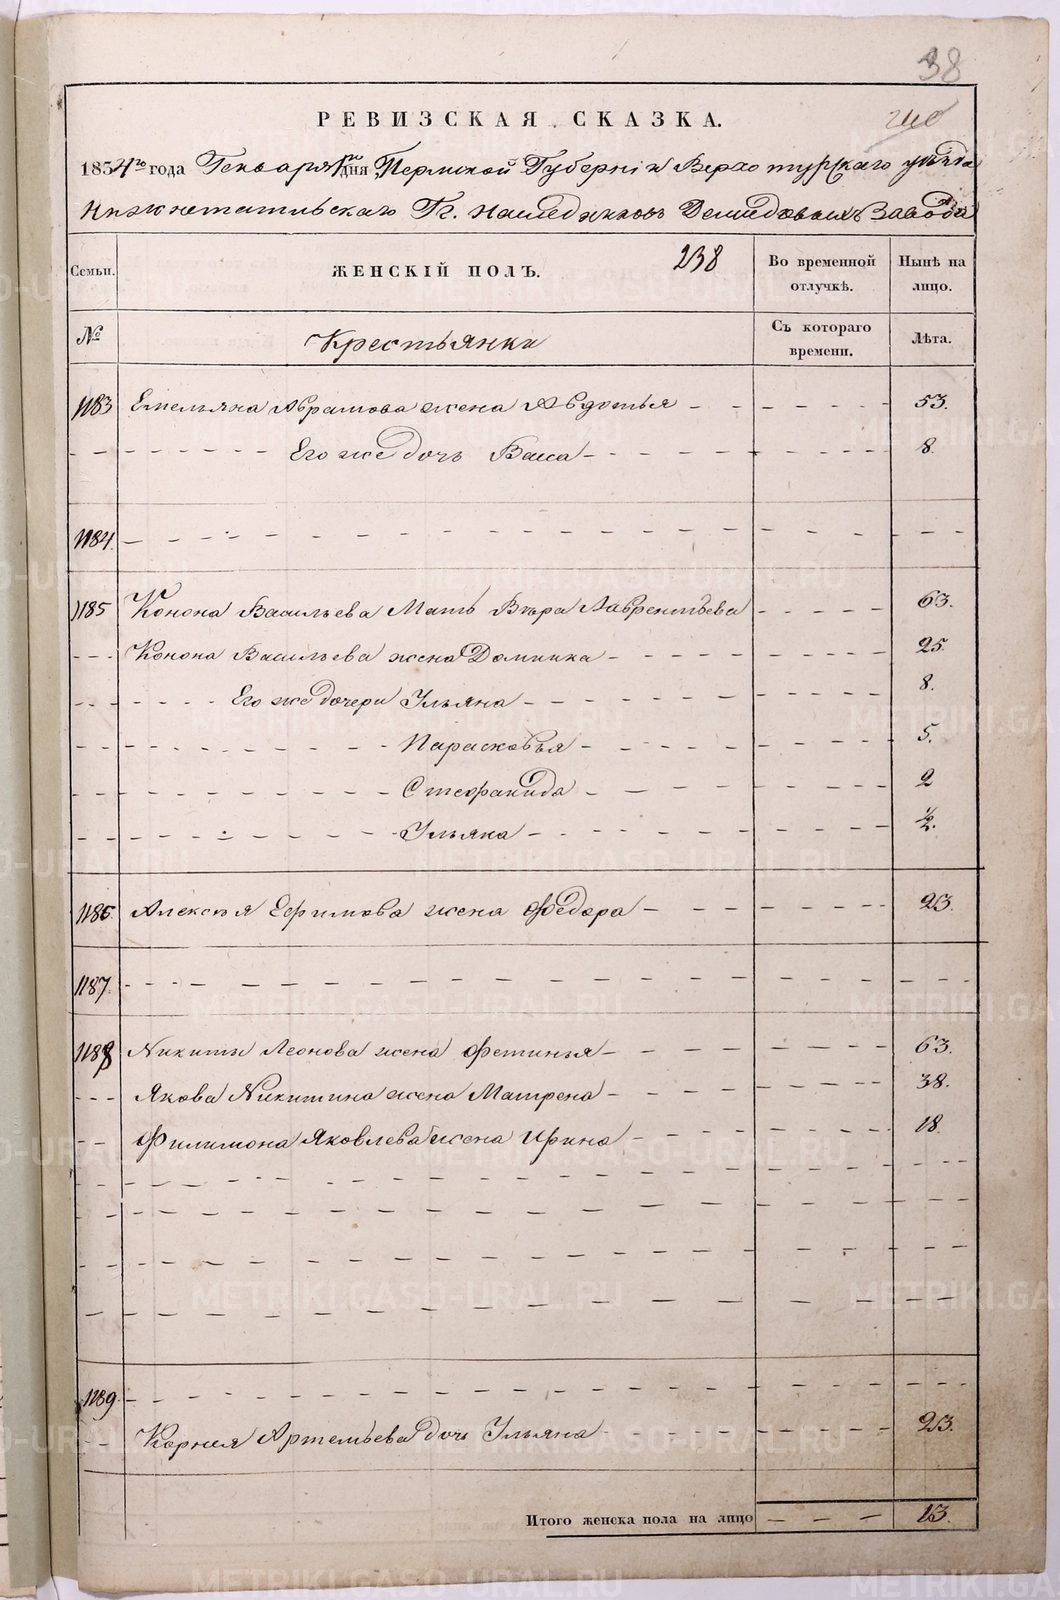 38
РЕВИЗСКАЯ СКАЗКА.
1854го года Генваря дня Пермской Губернiи Верхотурскаго уѣзда
Нижнетагильскаго Гг. Наследниковъ Демидовыхъ Завода
Семьи. ЖЕНСКІЙ ПОЛЪ. 238 Во временной отлучкѣ. Нынѣ на лицо.
№ Крестьянки Съ котораго времени. Лѣта.
1183 Емельяна Абрамова жена Авдотья 53.
Его же дочь Васса 8.
1184.
1185 Конона Васильева Мать Вѣра Лаврентьева 63.
Конона Васильева жена Домника 25.
Его же дочери Ульяна 8.
Парасковья 5.
Стефанида 2
Ульяна ½.
1186 Алексѣя Ефимова жена Федора 23.
1187.
1188 Никиты Леонова жена Фетинья 63.
Якова Никитина жена Матрена 38.
Филимона Яковлева жена Ирина 18.
1189.
Корнея Артемьева дочь Ульяна 23.
Итого женска пола на лицо 13.
METRIKI.GASO-URAL.RU